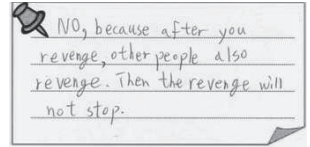 NO, because after you
revenge, other people also
revenge. Then the revenge will
not stop.